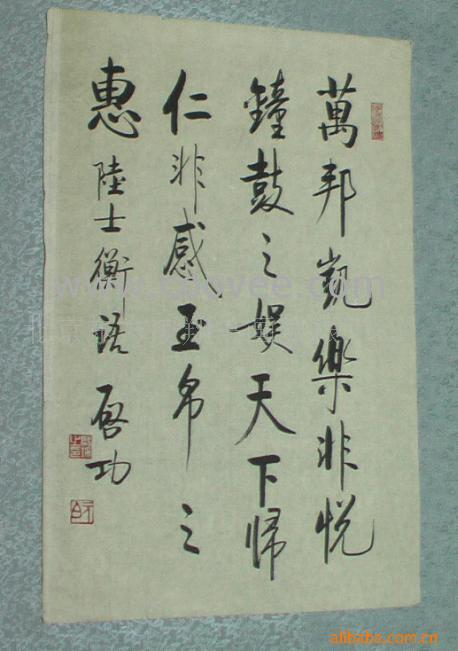 萬邦凱樂非悦
鐘鼓之娱天下歸
仁非感玉帛之
惠 陸士衡語 啓功
www.cnovee.com
alibaba.com.cn